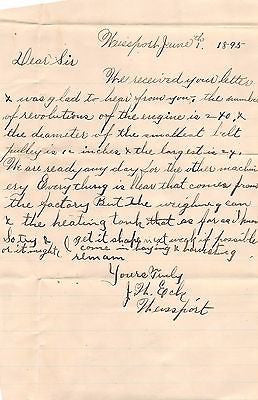 Weissport June 1th 1895
Dear Sir
We received your letter
& was glad to hear from you, the number
of revolutions of the engine is 240, &
the deameter of the smallest belt
pulley is 12 inches & the largest is 24
We are ready any day for the other machin
ery Everything is hear that comes from
the factory But the weighing can
& the heating tank that as far as I know
So try & get it shape next week if possible
or it might come in haying & harvesting
remain
Yours Truly
J. Th. Eck
Weissport